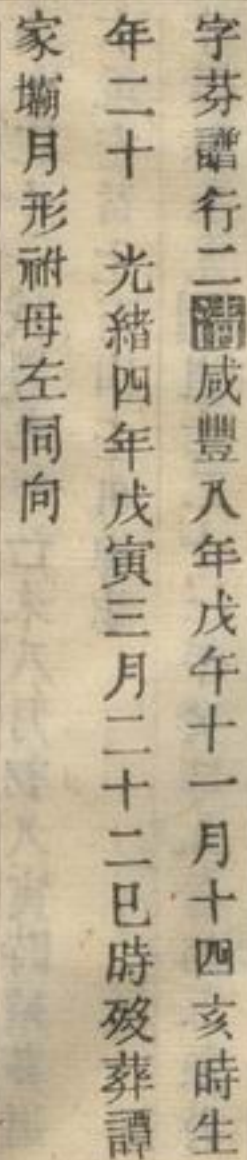 字芬譜行二咸豐八年戊午十一月十四亥時生
年二十 光緒四年戊寅三月二十二巳時歿葬譚
家塴月形祔母左同向